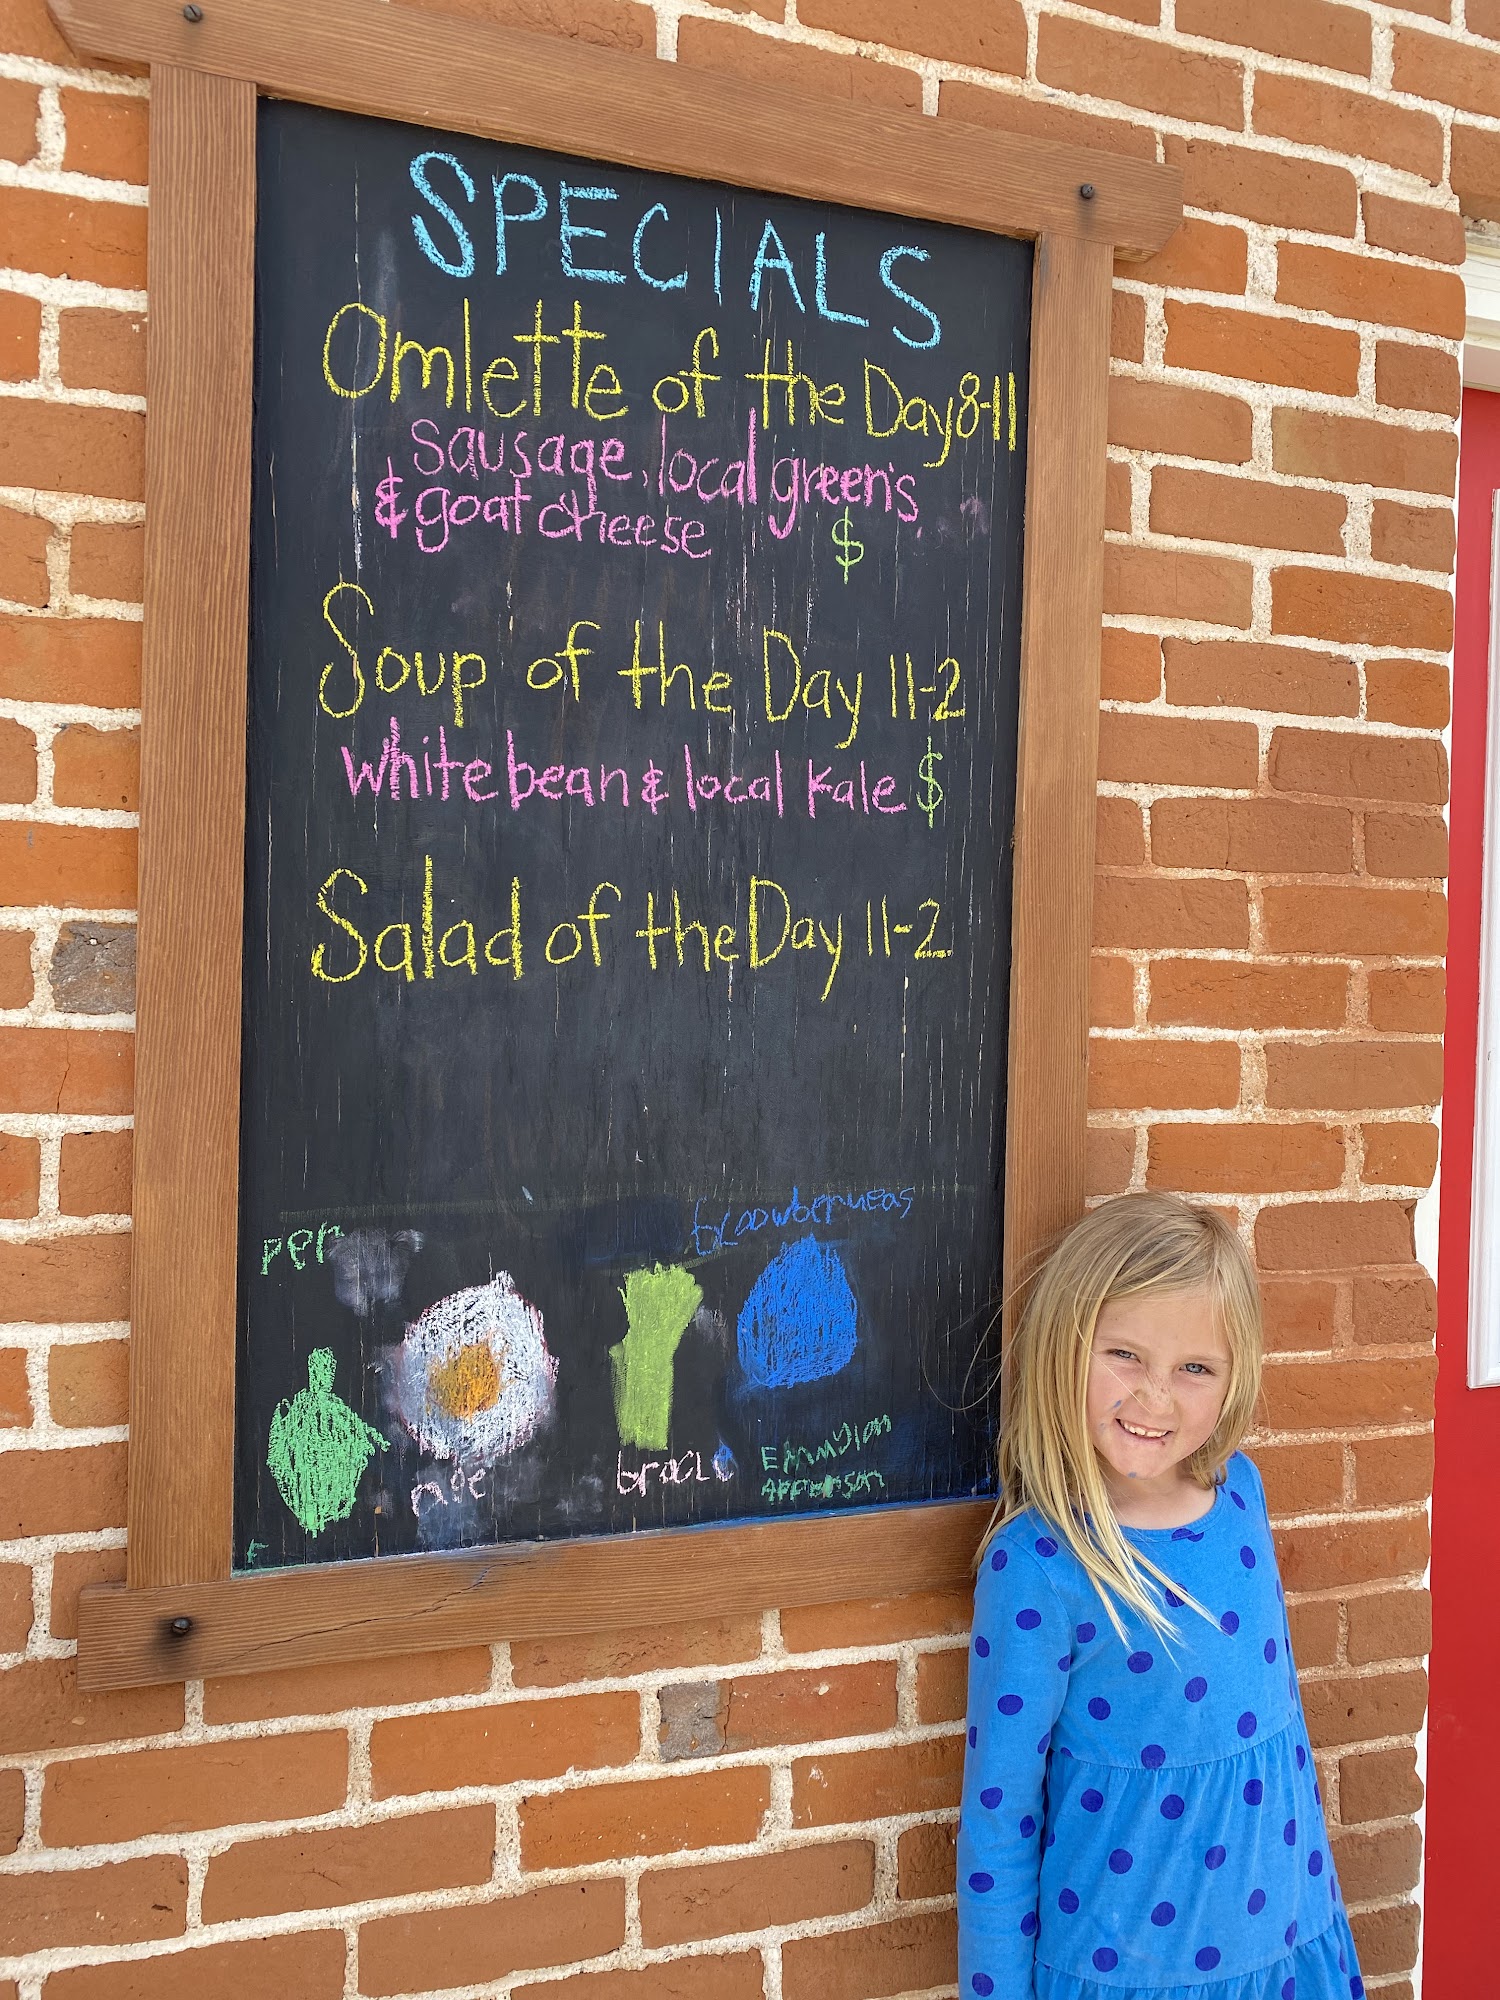 SPECIALS
Omlette of the Day 8-11
sausage, local green's
& goat cheese $
Soup of the Day 11-2
white bean & local kale $
Salad of the Day 11-2
Per